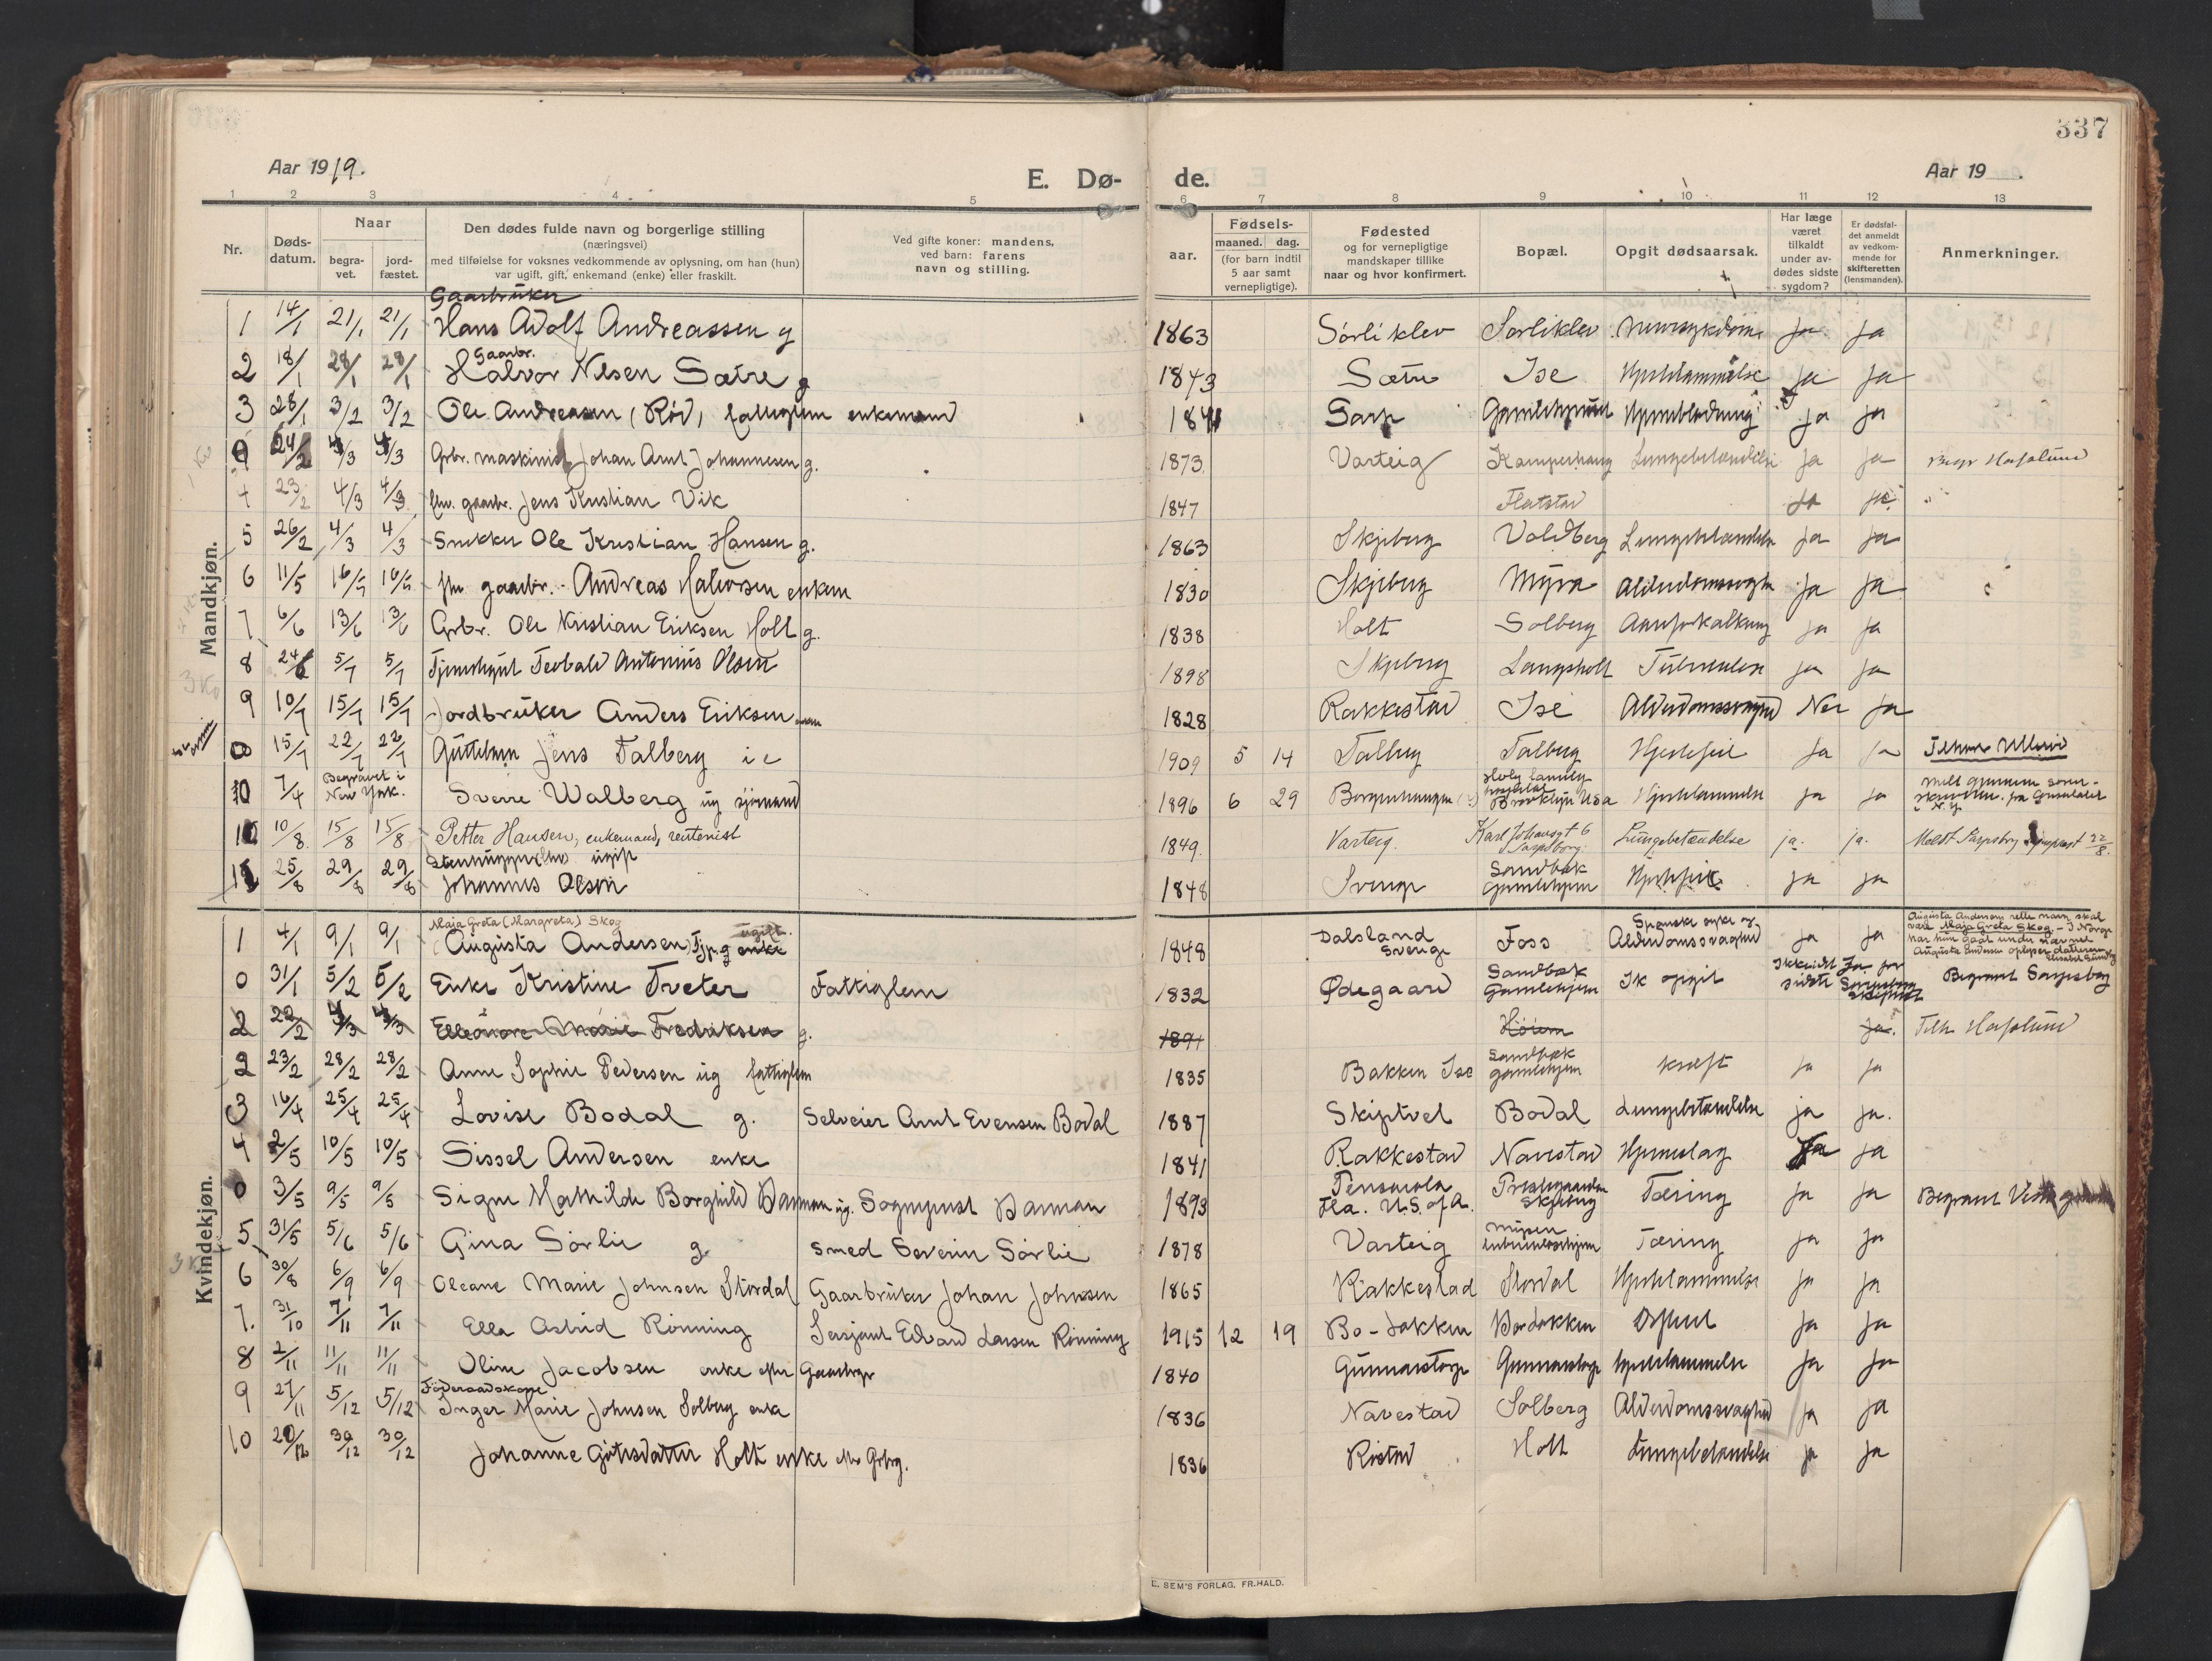 337
Aar 1919.
E. Dø-
de.
Aar 19 .
1 2 3 4 5 6 7 8 9 10 11 12 13
Nr.
Døds-
datum.
Naar
begra-
vet.
jord-
fæstet.
Den dødes fulde navn og borgerlige stilling
(næringsvei)
med tilføielse for voksnes vedkommende av oplysning, om han (hun)
var ugift, gift, enkemand (enke) eller fraskilt.
Ved gifte koner: mandens,
ved barn: farens
navn og stilling.
aar.
Fødsels-
maaned. dag.
(for barn indtil
5 aar samt
vernepligtige).
Fødested
og for vernepligtige
mandskaper tillike
naar og hvor konfirmert.
Bopæl.
Opgit dødsaarsak.
Har læge
været
tilkaldt
under av-
dødes sidste
sygdom?
Er dødsfal-
det anmeldt
av vedkom-
mende for
skifteretten
(lensmanden).
Anmerkninger.
Mandkjøn.
Gaarbruker
1 14/1 21/1 21/1 Hans Adolf Andreassen g 1863 Sørliklev Sørliklev ja ja
Gaarbr.
2 18/1 28/1 28/1 Halvor Nilsen Sætre g 1843 Sætre Ise Hjertelammelse ja ja
3 28/1 3/2 3/2 Ole Andreasen (Rød) fattiglem enkemand 1841 Sarp Gamlehjemmet ja ja
0 24/2 4/3 4/3 Grbr. maskinist Johan Arnt Johannesen g. 1873 Varteig Kamperhaug Lungebetændelse ja ja Begr Hafslund
4 23/2 4/3 4/3 fhv. gaarbr. Jens Kristian Vik 1847 Flatstad ja ja "
5 26/2 4/3 4/3 Snekker Ole Kristian Hansen g. 1863 Skjeberg Voldberg Lungebetændelse ja ja
6 11/5 16/5 16/5 fhv gaarbr. Andreas Halvorsen enkem 1830 Skjeberg Myra Alderdomssvaghet ja ja
7 6/6 13/6 13/6 Grbr. Ole Kristian Eriksen Holt g. 1838 Holt Solberg Aareforkalkning ja ja
8 24/6 5/7 5/7 Tjenestegut Teobald Antonius Olsen 1898 Skjeberg Langsholt Tuberkulose ja ja
9 10/7 15/7 15/7 Jordbruker Anders Eriksen 1828 Rakkestad Ise Alderdomssvaghed Nei ja
0 15/7 22/7 22/7 Guttebarn Jens Talberg 1909 5 14 Talberg Talberg Hjertefeil ja ja Tilhører Ullerø
10 7/4 Begravet i
New York. Sverre Walberg ug sjømand 1896 6 29 Borgenhaugen Holy family
hospital
Brooklyn USA Hjertelammelse ja ja
11 10/8 15/8 15/8 Petter Hansen, enkemand, rentenist 1849. Varteig. Karl Johansgt 6
Sarpsborg. Lungebetændelse ja. ja. Meldt Sarpsborg sogneprest 22/8.
Stenhugger ugift
12 25/8 29/8 29/8 Johannes Olsen 1848 Sverige Sandbæk
Gamlehjem Hjertefeil ja ja
Kvindekjøn.
Maja Greta (Margreta) Skog
1 4/1 9/1 9/1 (Augusta Andersen) Fjp. g enke ugift. 1848 Dalsland
Sverige Foss Spanske syke og
Alderdomssvaghed ja ja Augusta Andersens rette navn skal
være Maja Greta Skog - I Norge
har hun gaat under navnet
Augusta Andersen oplyser datteren
Elisabet Sundby
0 31/1 5/2 5/2 Enke Kristine Tveter Fattiglem 1832 Ødegaard Sandbæk
Gamlehjem Ik opgit Ikke
sidste Ja for
Sarpsborg
Skifteret Begravet Sarpsborg
2 22/2 4/3 4/3 Elleonore Marie Fredriksen g. 1891 Høium ja. Tilh. Hafslund
2 23/2 28/2 28/2 Anne Sophie Pedersen ug fattiglem 1835 Bakken Ise Sandbæk
gamlehjem kræft ja ja
3 16/4 25/4 25/4 Lovise Bodal g. Selveier Arnt Evensen Bodal 1887 Skiptvet Bodal Lungebetændelse ja ja.
4 2/5 10/5 10/5 Sissel Andersen enke 1841 Rakkestad Navestad Hjerneslag Ja ja
0 3/5 9/5 9/5 Signe Mathilde Borghild Barman ug. Sogneprest Barman 1893 Pensacola
Fla. U.S. of A. Prestegaarden
Skjeberg Tæring ja ja Begravet Vestre
5 31/5 5/6 5/6 Gina Sørlie g. Smed Severin Sørlie 1878 Varteig Mysen
tuberkuloschjem Tæring ja ja
6 30/8 6/9 6/9 Oleane Marie Johnsen Stordal Gaarbruker Johan Johnsen 1865 Rakkestad Stordal Hjertelammelse ja ja
7. 31/10 7/11 7/11 Ella Astrid Rønning Sersjant Edvard Larsen Rønning 1915 12 19 Bo-bakken Borbakken ja ja
8 2/11 11/11 11/11 Oline Jacobsen enke efter Gaardbgr 1840 Gunnarstorp Gunnarstorp hjertelammelse ja ja
Føderaadskone
9 27/11 5/12 5/12 Inger Marie Johnsen Solberg enke 1836 Navestad Solberg Alderdomssvaghed ja ja
10 20/12 30/12 30/12 Johanne Gutusdatter Holt enke efter Grbrg. 1836 Ristad Holt Lungebetændelse ja ja
E. SEM'S FORLAG, FR.HALD.